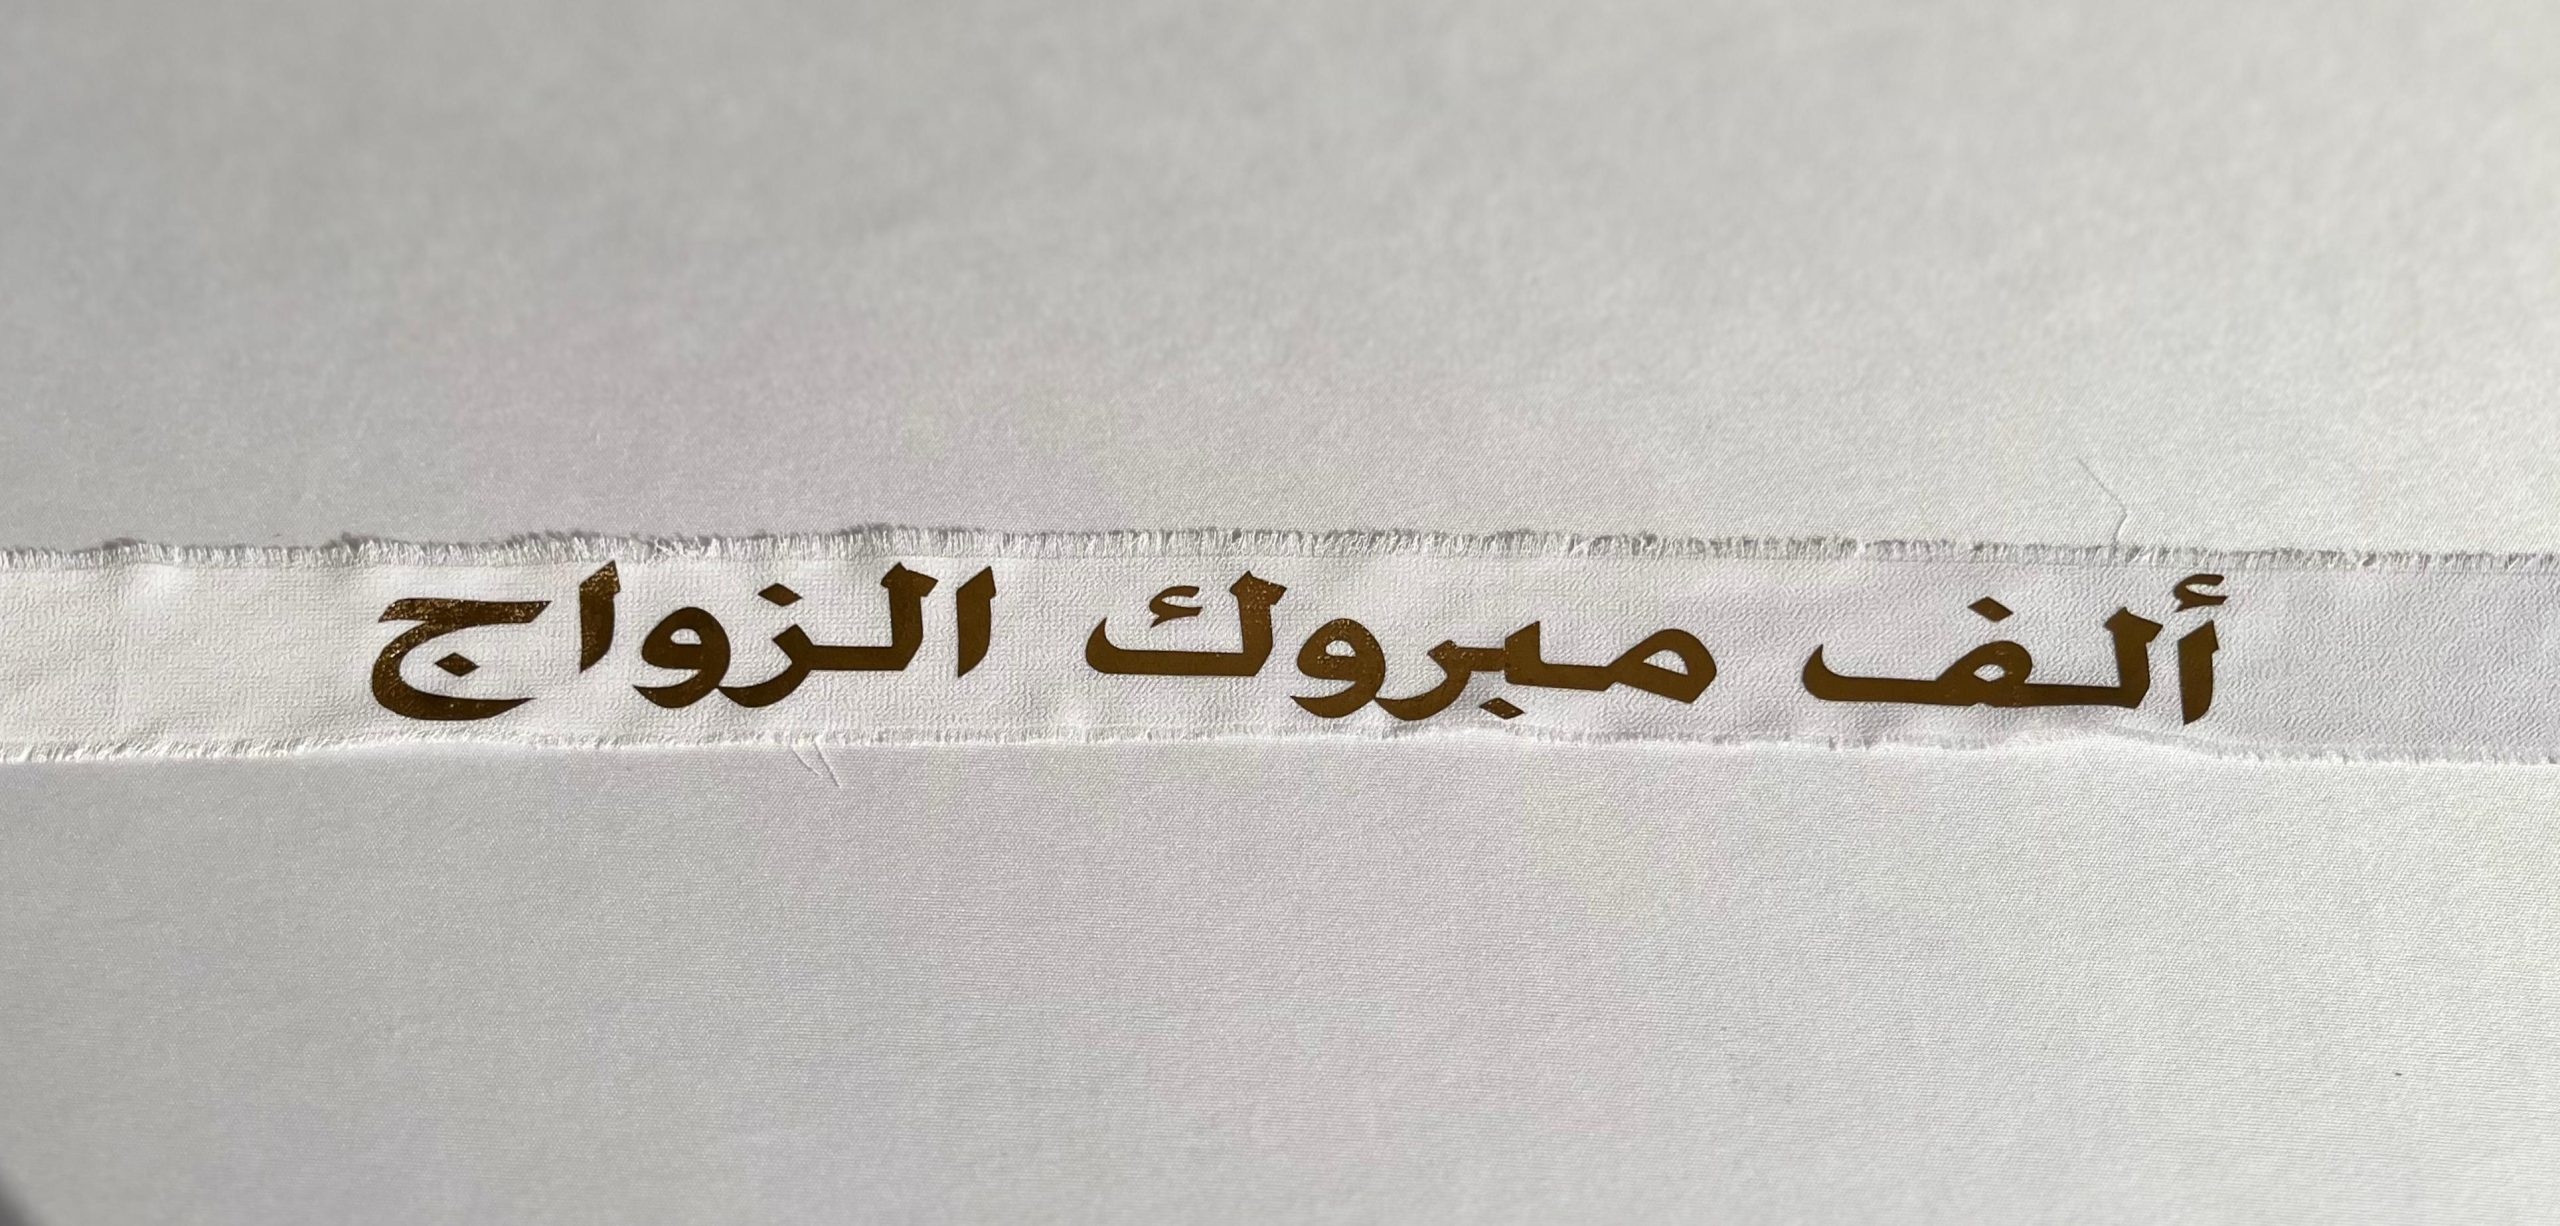 ألف مبروك الزواج